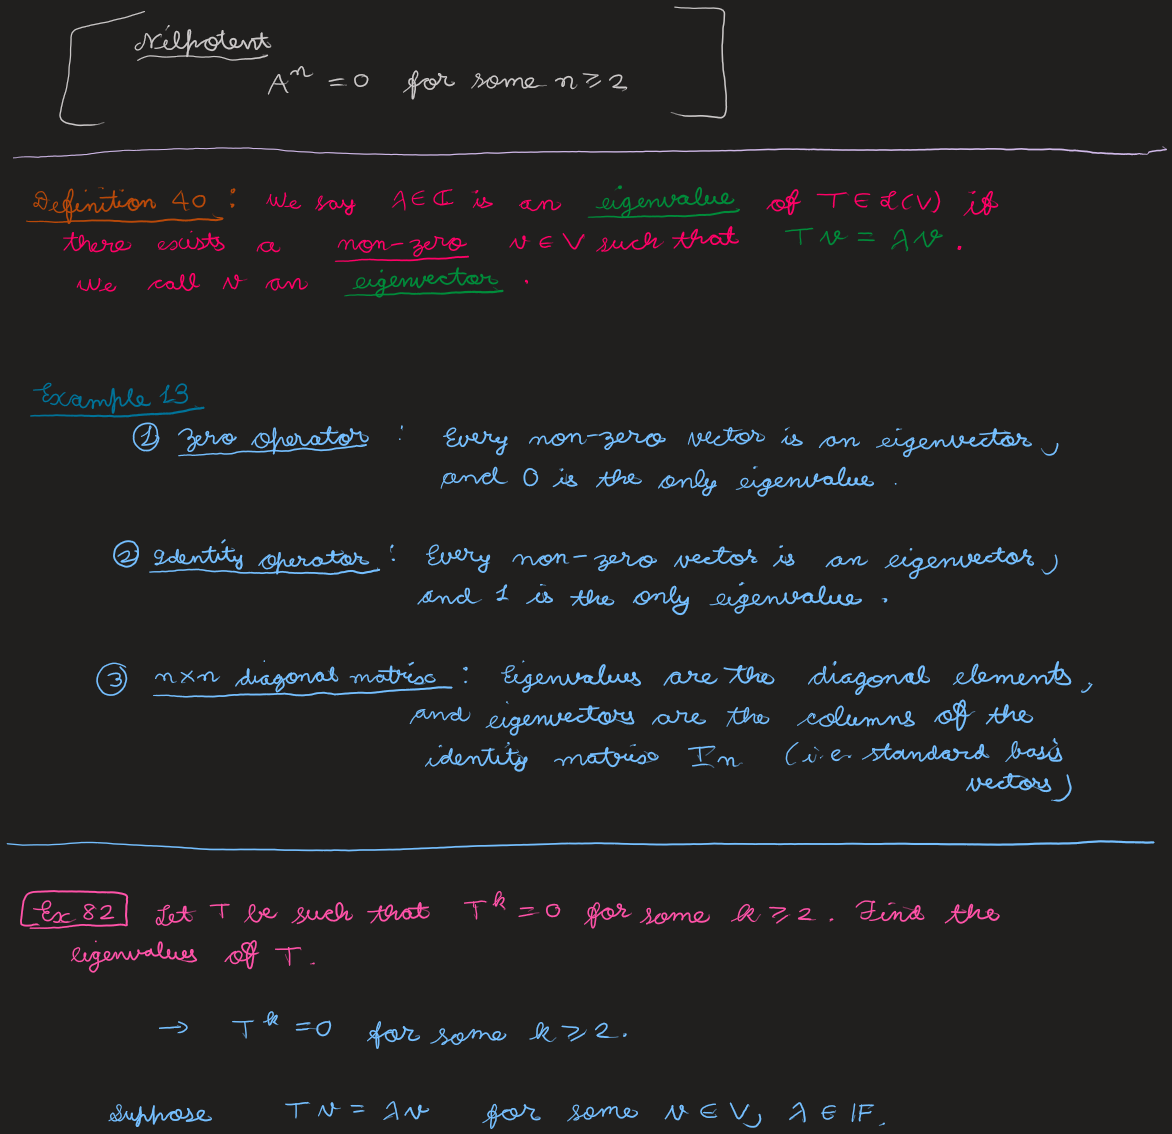 Nilpotent
Aⁿ = 0 for some n ≥ 2
Definition 40 : We say λ ∈ ℂ is an eigenvalue of T ∈ ℒ(V) if
there exists a non-zero v ∈ V such that Tv = λv.
We call v an eigenvector.
Example 13
① Zero operator : Every non-zero vector is an eigenvector,
and 0 is the only eigenvalue.
② Identity operator : Every non-zero vector is an eigenvector,
and 1 is the only eigenvalue.
③ n×n diagonal matrix : Eigenvalues are the diagonal elements,
and eigenvectors are the columns of the
identity matrix In (i.e. standard basis
vectors)
Ex 82 Let T be such that Tᵏ = 0 for some k ≥ 2. Find the
eigenvalues of T.
→ Tᵏ = 0 for some k ≥ 2.
Suppose Tv = λv for some v ∈ V, λ ∈ 𝔽.